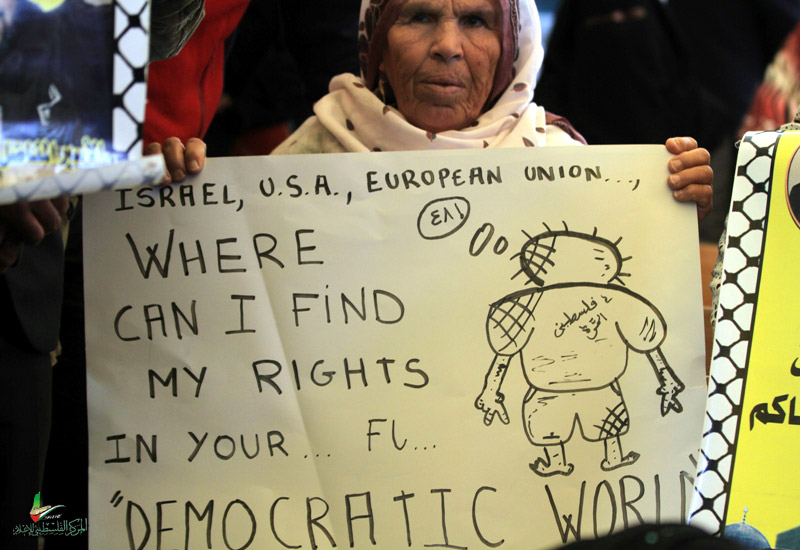 ISRAEL, U.S.A., EUROPEAN UNION...,
WHERE
CAN I FIND
MY RIGHTS
IN YOUR... FU...
"DEMOCRATIC WORLD
٤٨١
فلسطيني
اكم
المركز الفلسطيني للإعلام